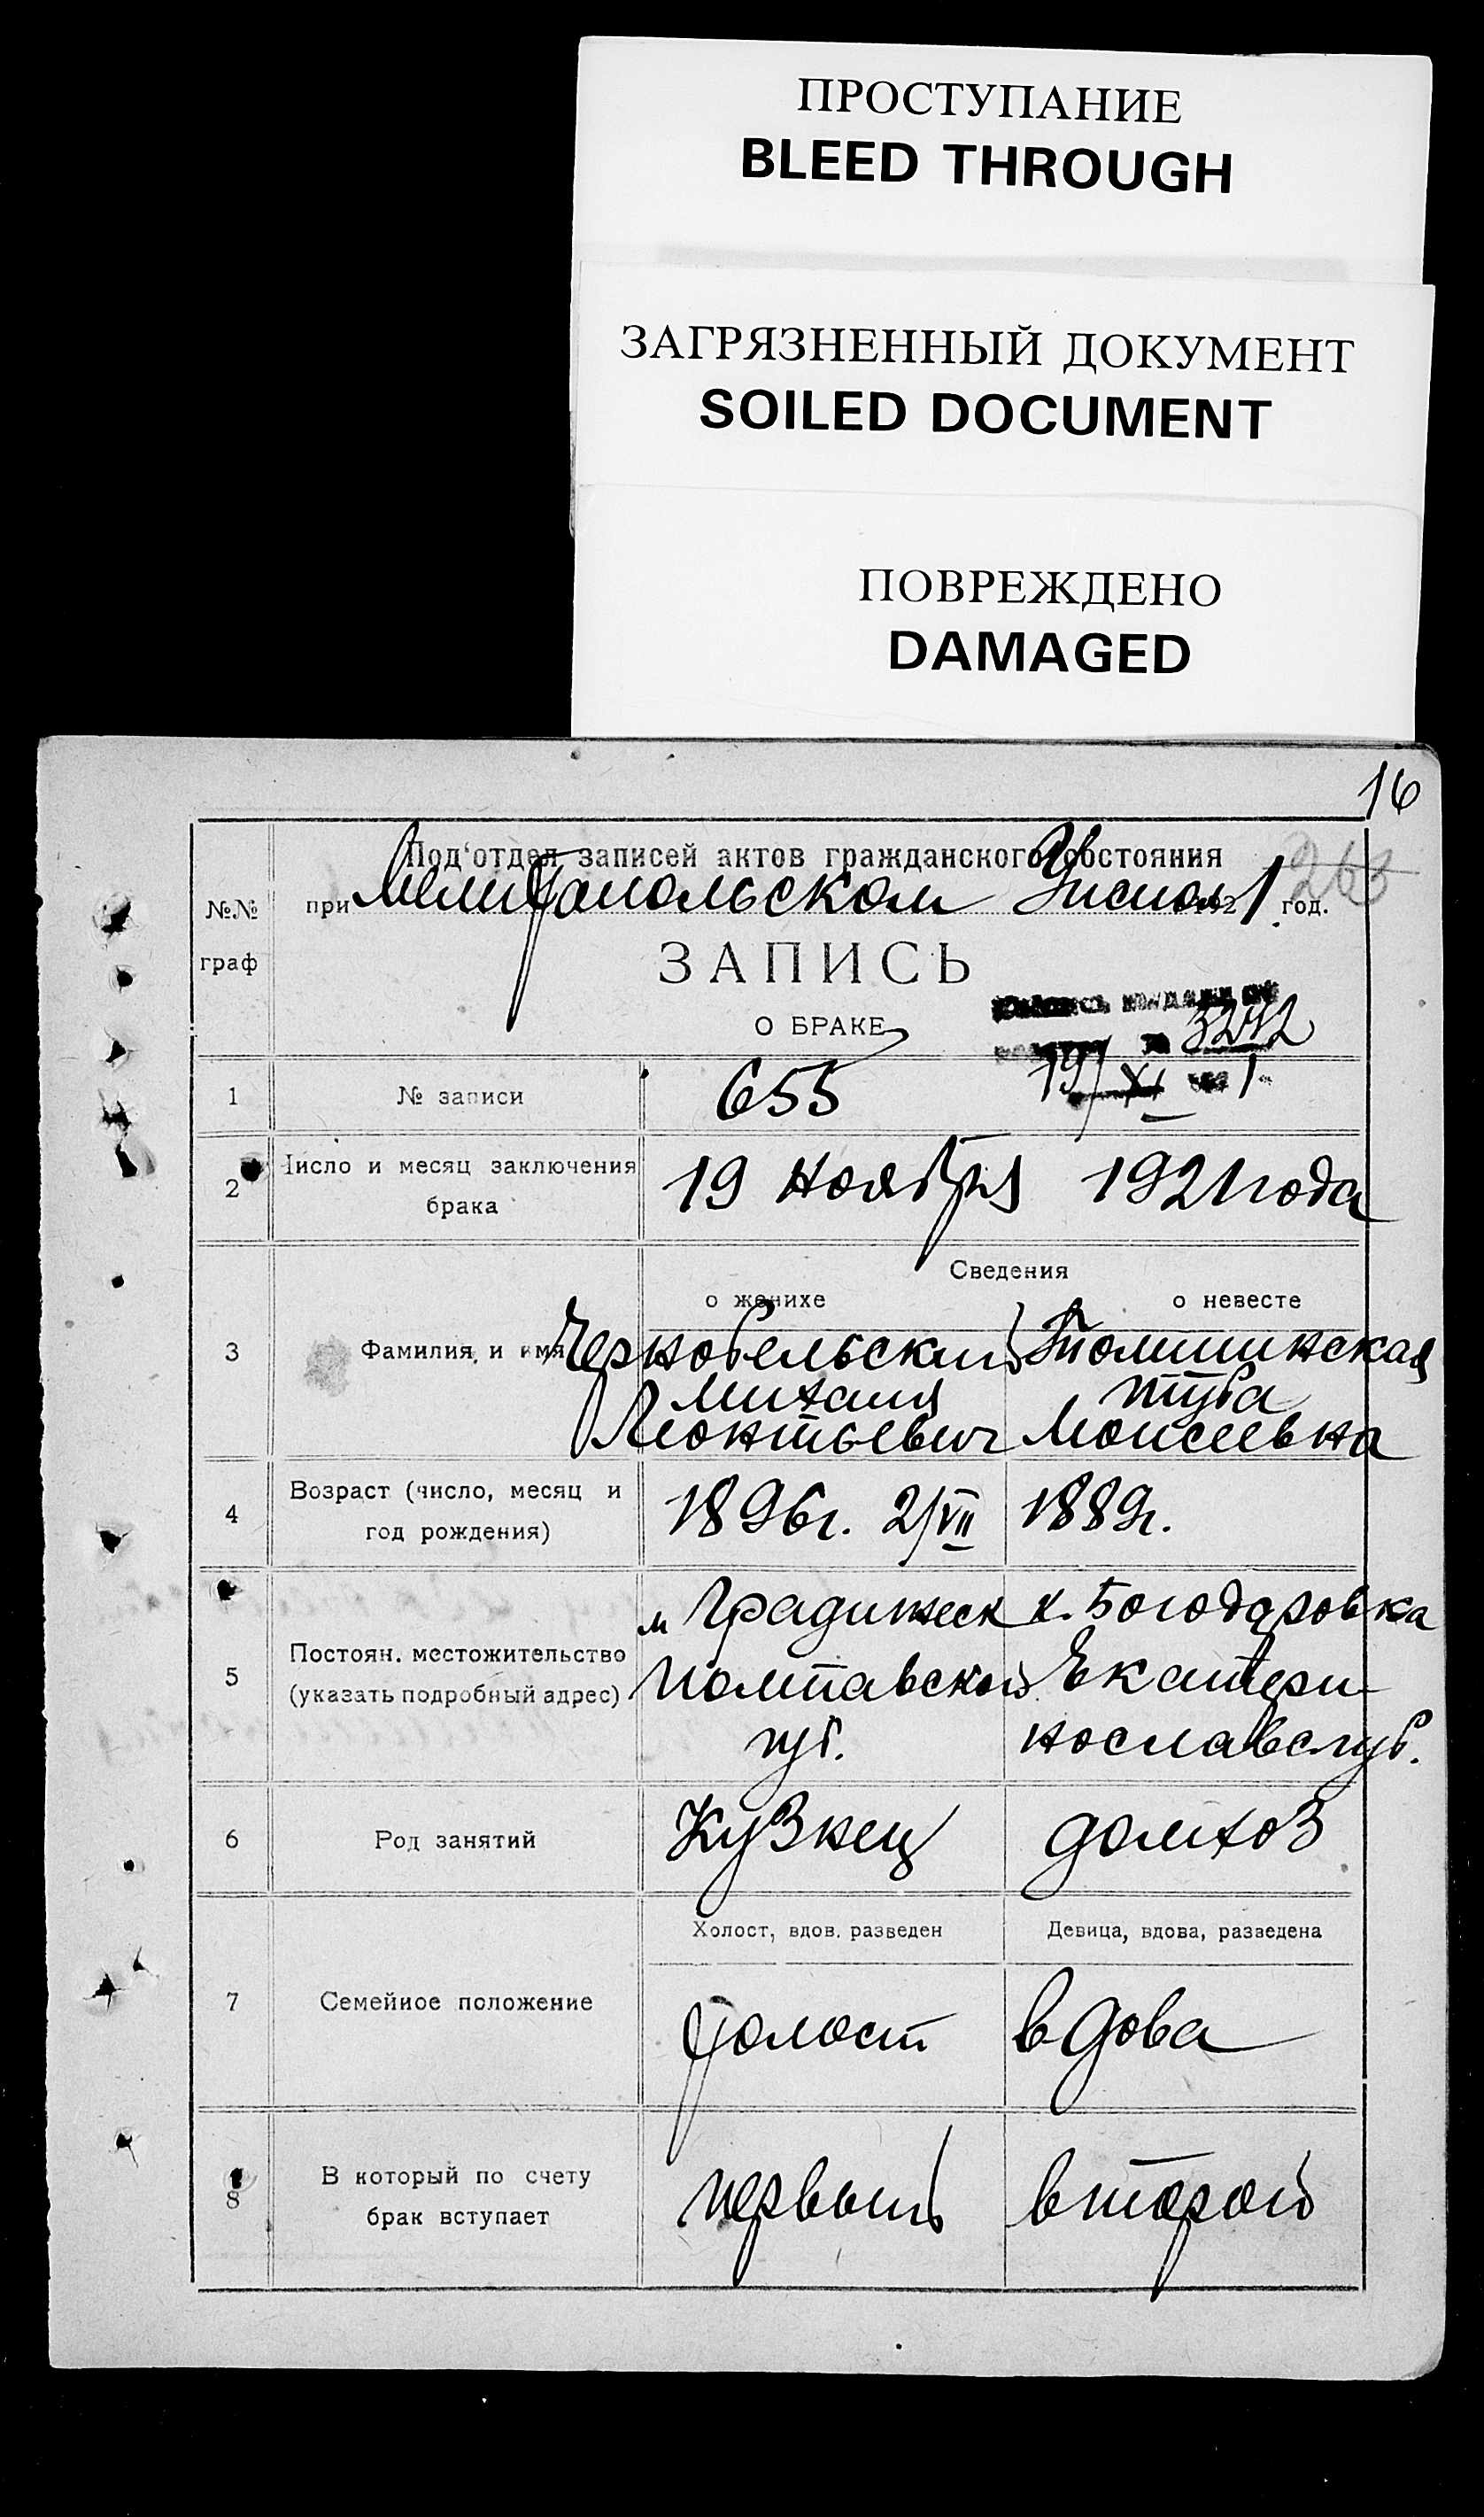 ПРОСТУПАНИЕ
BLEED THROUGH
ЗАГРЯЗНЕННЫЙ ДОКУМЕНТ
SOILED DOCUMENT
ПОВРЕЖДЕНО
DAMAGED
16
Под'отдел записей актов гражданского состояния
263
№№ граф
при Мелитопольском Уисполк 1921 год.
ЗАПИСЬ
О БРАКЕ
3272
1 № записи 655 19/XI 1
2 Число и месяц заключения брака
19 ноября 1921 года
Сведения
о женихе о невесте
3 Фамилия, и имя Чернобельский
Михаил
Леонтьевич
Моисеевна
4 Возраст (число, месяц и год рождения)
1896г. 2/VII 1889г.
5 Постоян. местожительство (указать подробный адрес)
м Градижеск к. Богодаровка
Полтавской Екатери
губ. нославс губ.
6 Род занятий Кузнец домхоз
Холост, вдов. разведен Девица, вдова, разведена
7 Семейное положение холост вдова
8 В который по счету брак вступает
первый второй